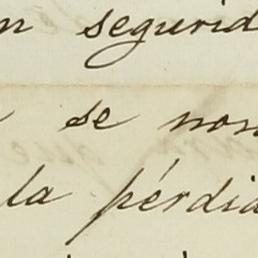 n segurid
se nom
la pérdid